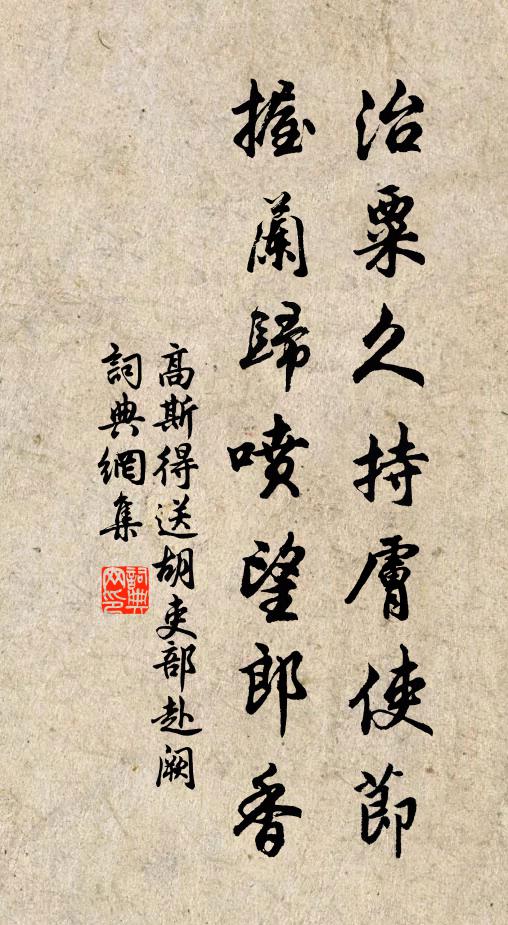 治粟久持膚使節
握蘭歸噴望郎香
高斯得送胡吏部赴闕
詞典網集
詞典網印